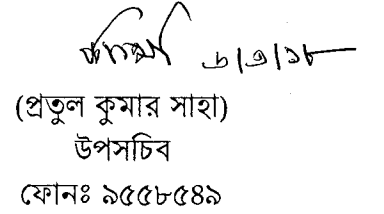 ৬/৩/১৮
(প্রতুল কুমার সাহা)
উপসচিব
ফোনঃ ৯৫৫৮৫৪৯